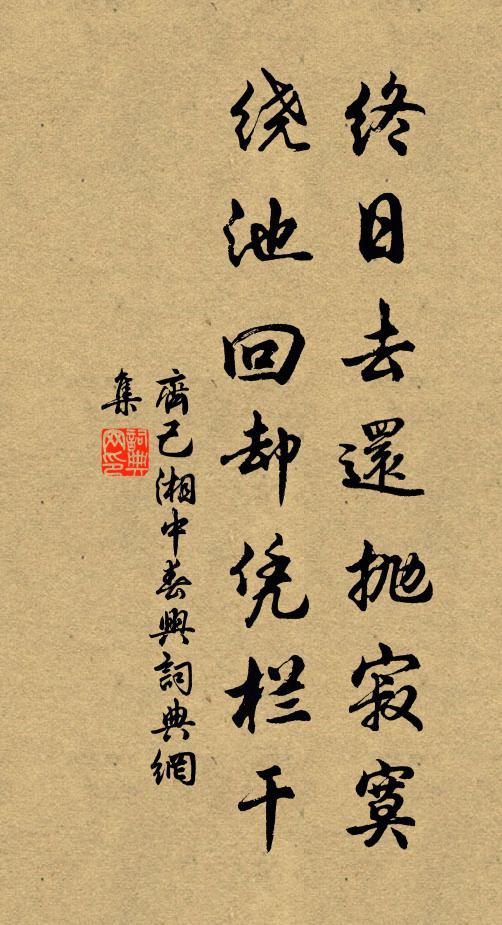 终日去還抛寂寞
绕池回却凭栏干
齊己湘中春興詞典網
集
詞典
网印